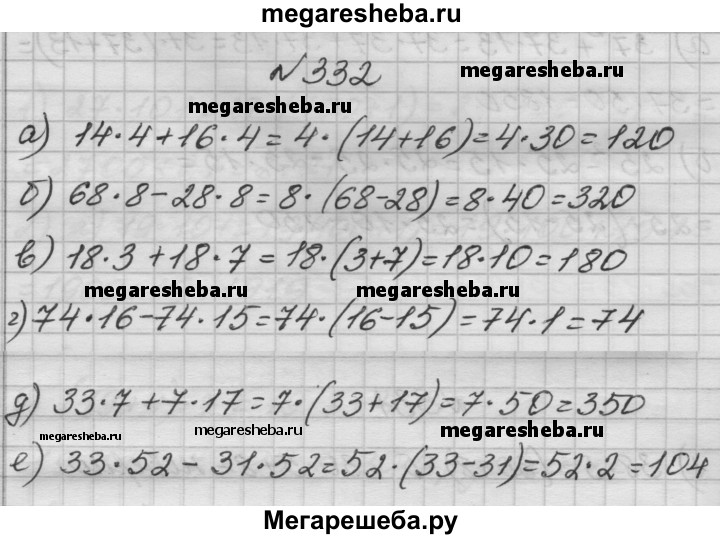 megaresheba.ru
№332
megaresheba.ru
megaresheba.ru
а) 14·4+16·4=4·(14+16)=4·30=120
б) 68·8-28·8=8·(68-28)=8·40=320
в) 18·3+18·7=18·(3+7)=18·10=180
megaresheba.ru
megaresheba.ru
г) 74·16-74·15=74·(16-15)=74·1=74
д) 33·7+7·17=7·(33+17)=7·50=350
megaresheba.ru
megaresheba.ru
megaresheba.ru
е) 33·52-31·52=52·(33-31)=52·2=104
Мегарешеба.ру